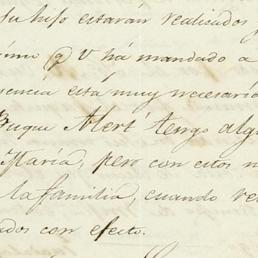 su hijo estarán realizados
q V há mandado a
está muy necesario
Buque Alert tengo alg
Maria, pero con estos n
la familia, cuando ve
dos con efecto.